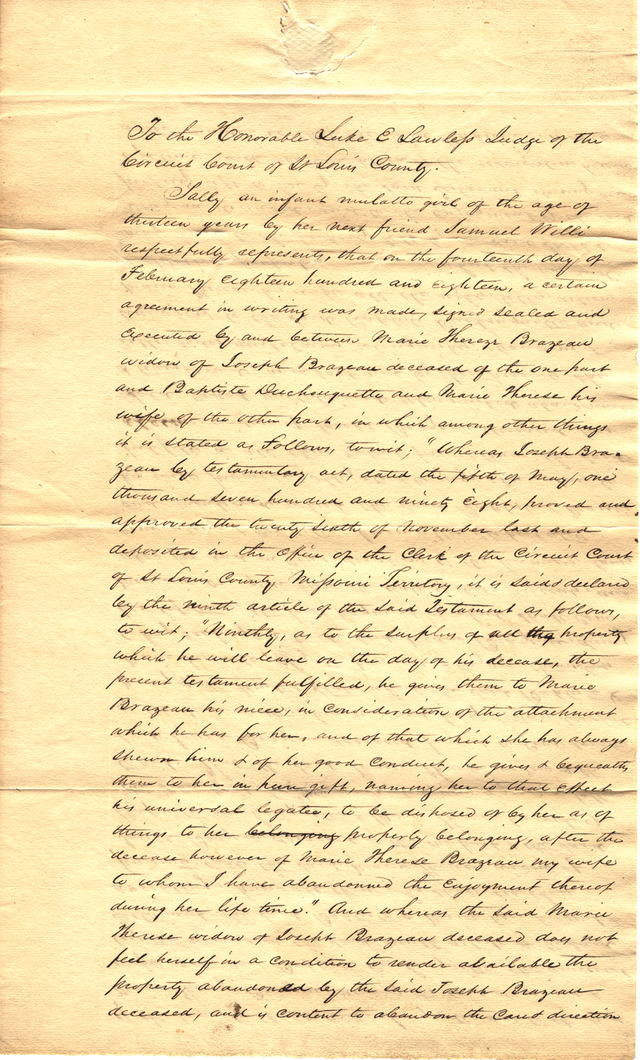 To the Honorable Luke E Lawless Judge of the
Circuit Court of St Louis County.
Sally an infant mulatto girl of the age of
thirteen years by her next friend Samuel Willi
respectfully represents, that on the fourteenth day of
February eighteen hundred and eighteen, a certain
agreement in writing was made, signed sealed and
executed by and between Marie Thereze Brazeau
widow of Joseph Brazeau deceased of the one part
and Baptiste Duchouquette and Marie Therese his
wife of the other part, in which among other things
it is stated as Follows, towit; "Whereas Joseph Bra-
zeau by testamentary act, dated the fifth of May, one
thousand seven hundred and ninety Eight, proved and
approved the twenty sixth of November last and
deposited in the Office of the Clerk of the Circuit Court
of St Louis County Missouri Territory, it is said & declared
by the ninth article of the said Testament as follows,
to wit; "Ninthly, as to the surplus of all the property
which he will leave on the day of his decease, the
present testament fulfilled, he gives them to Marie
Brazeau his niece, in consideration of the attachment
which he has for her, and of that which she has always
shewn him & of her good conduct, he gives & bequeaths
them to her in pure gift, naming her to that effect
his universal legatee, to be disposed of by her as of
things to her belonging property belonging, after the
decease however of Marie Therese Brazeau my wife
to whom I have abandonned the Enjoyment thereof
during her life time." And whereas the said Marie
Therese widow of Joseph Brazeau deceased does not
feel herself in a condition to render available the
property abandoned by the said Joseph Brazeau
deceased, and is content to abandon the care & direction